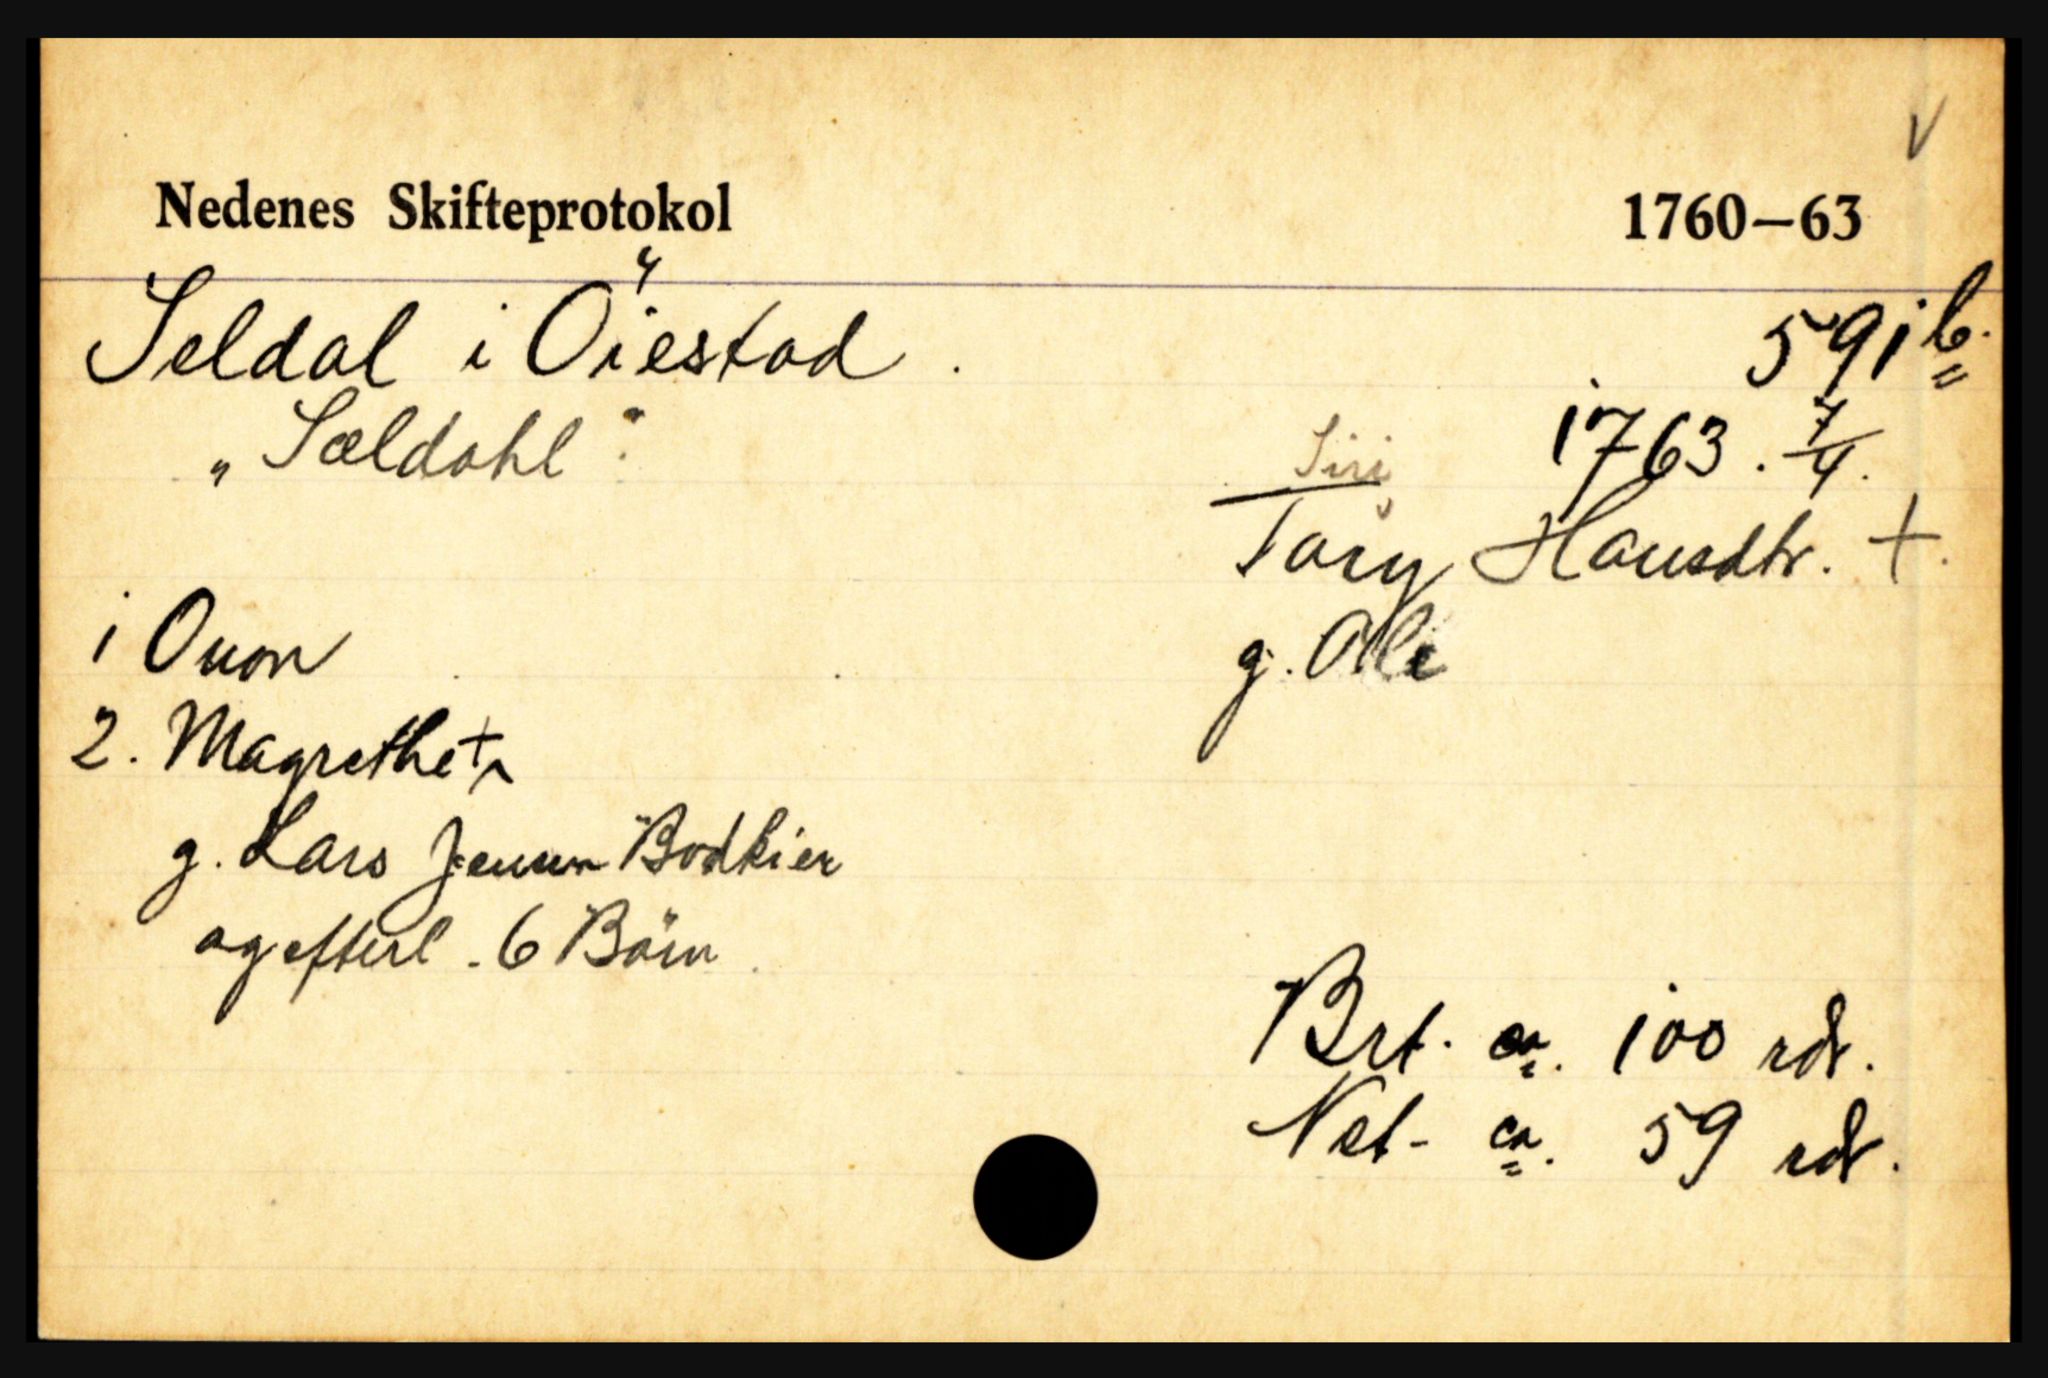 V
Nedenes Skifteprotokol 1760–63
Seldal i Öiestad.
591 b.
„Sældahl".
1763. 7/4.
Siri
Tarij Hansdtr. +.
g. Ole
1 Onon
2. Magrethe +
g. Lars Jensen Bodkier
og efterl. 6 Börn.
Brt. ca. 100 rdr.
Net- ca. 59 rdr.